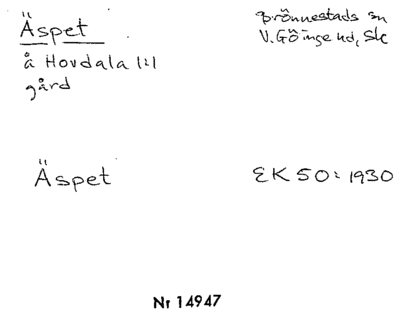 Äspet
å Hovdala 1:1
gård
Brönnestads sn
V. Göinge hd, Sk
Äspet
EK 50: 1930
Nr 14947